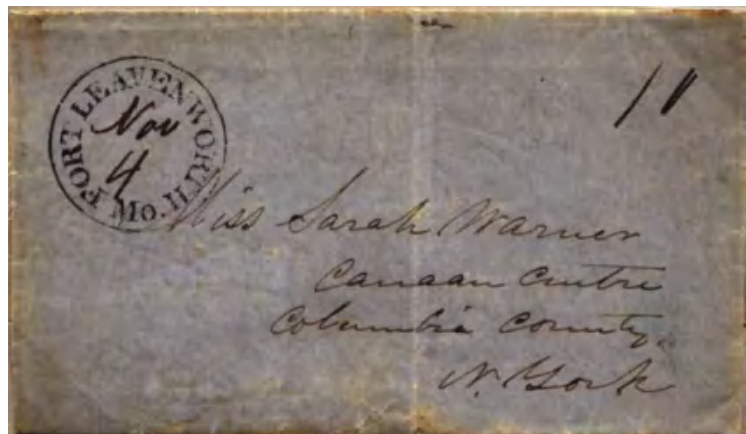 FORT LEAVENWORTH Mo
Nov
4
Miss Sarah Warner
Canaan Centre
Columbia County,
N. York